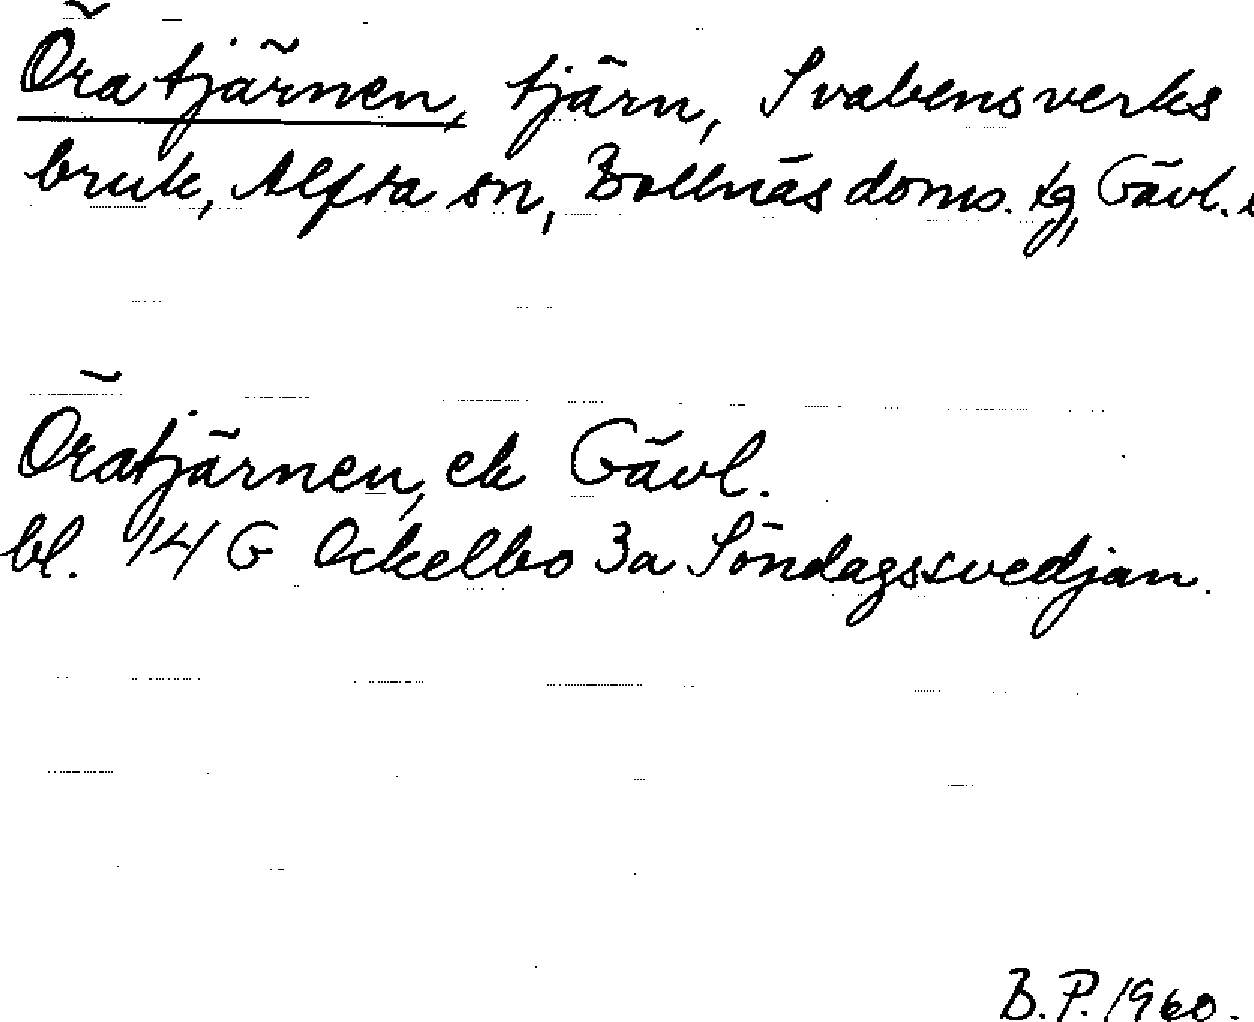 Öratjärnen, tjärn, Svabensverks
bruk, Alfta sn, Bollnäs doms. tg, Gävl.
Öratjärnen, ek Gävl.
bl. 14 G Ockelbo 3a Söndagssvedjan.
B.P. 1960.